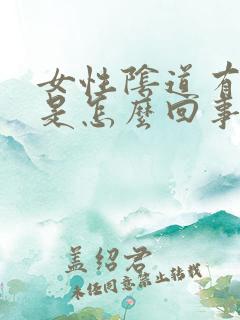 女性陰道有
是怎麼回事
蓋紹君
未经同意禁止转载